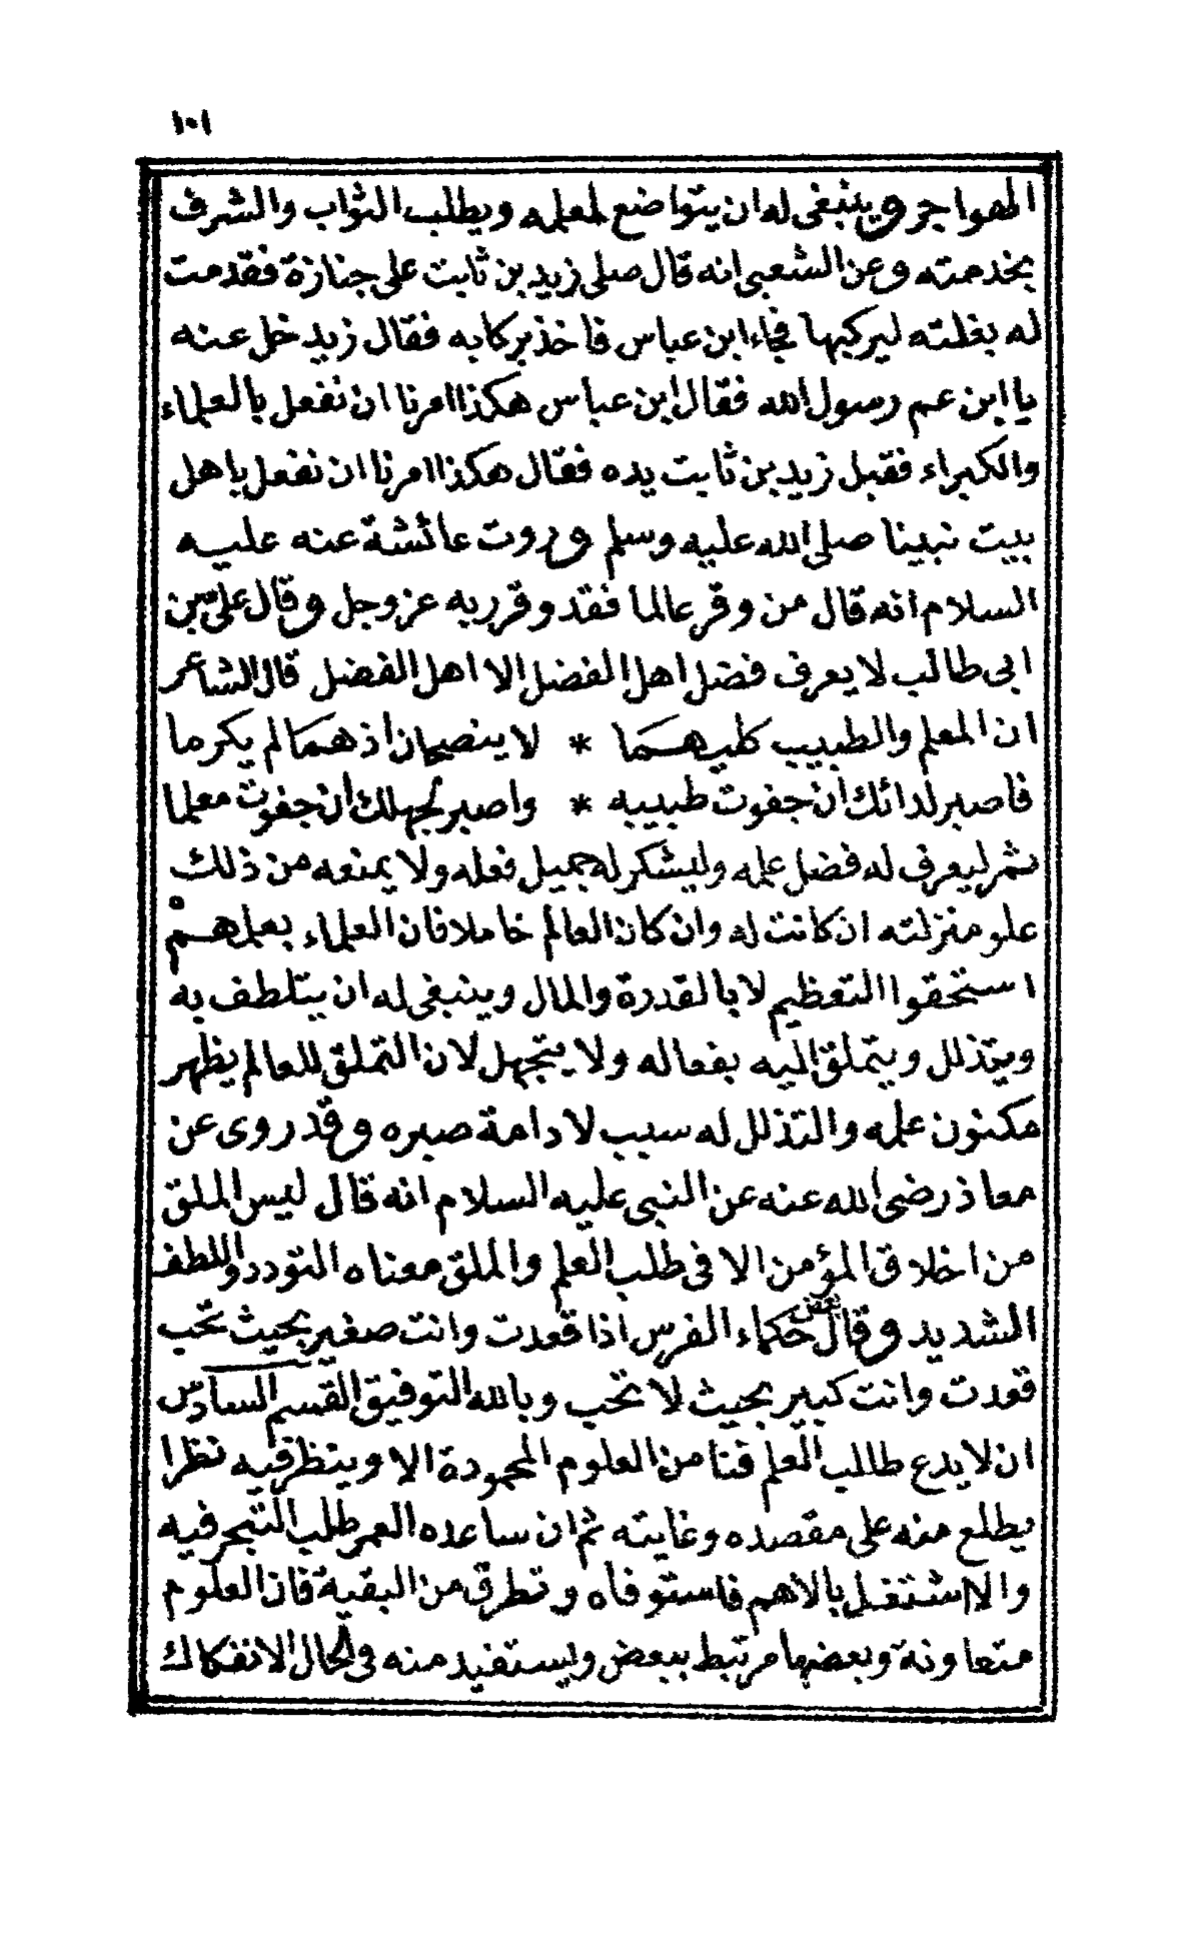 ١٠١
الهواجر وينبغى له ان يتواضع لمعلمه ويطلب الثواب والشرف
بخدمته وعن الشعبى انه قال صلى زيد بن ثابت على جنازة فقدمت
له بغلته ليركبها فجاء ابن عباس فاخذ بركابه فقال زيد خل عنه
يا ابن عم رسول الله فقال ابن عباس هكذا امرنا ان نفعل بالعلماء
والكبراء فقبل زيد بن ثابت يده فقال هكذا امرنا ان نفعل باهل
بيت نبينا صلى الله عليه وسلم وروت عائشة عنه عليه
السلام انه قال من وقر عالما فقد وقر ربه عز وجل وقال علىّ بن
ابى طالب لا يعرف فضل اهل الفضل الا اهل الفضل قال الشاعر
ان المعلم والطبيب كليهما * لا ينصحان اذ هما لم يكرما
فاصبر لدائك ان جفوت طبيبه * واصبر لجهلك ان جفوت معلما
ثم ليعرف له فضل علمه وليشكر له جميل فعله ولا يمنعه من ذلك
علو منزلته ان كانت له وان كان العالم خاملا فان العلماء بعلمهم
استحقوا التعظيم لا بالقدرة والمال وينبغى له ان يتلطف به
ويتذلل ويتملق اليه بفعاله ولا يتجهل لان التملق للعالم يظهر
مكنون علمه والتذلل له سبب لادامة صبره وقد روى عن
معاذ رضى الله عنه عن النبى عليه السلام انه قال ليس الملق
من اخلاق المؤمن الا فى طلب العلم والملق معناه التودد واللطف
الشديد وقال بعض حكماء الفرس اذا قعدت وانت صغير بحيث تحب
قودت وانت كبير بحيث لا تحب وبالله التوفيق القسم السادس
ان لا يدع طالب العلم فنا من العلوم المحمودة الا وينظر فيه نظرا
يطلع منه على مقصده وغايته ثم ان ساعده العمر طلب التبحر فيه
والا اشتغل بالاهم فاستوفاه وتطرق من البقية فان العلوم
متعاونة وبعضها مرتبط ببعض ويستفيد منه فى الحال الانفكاك